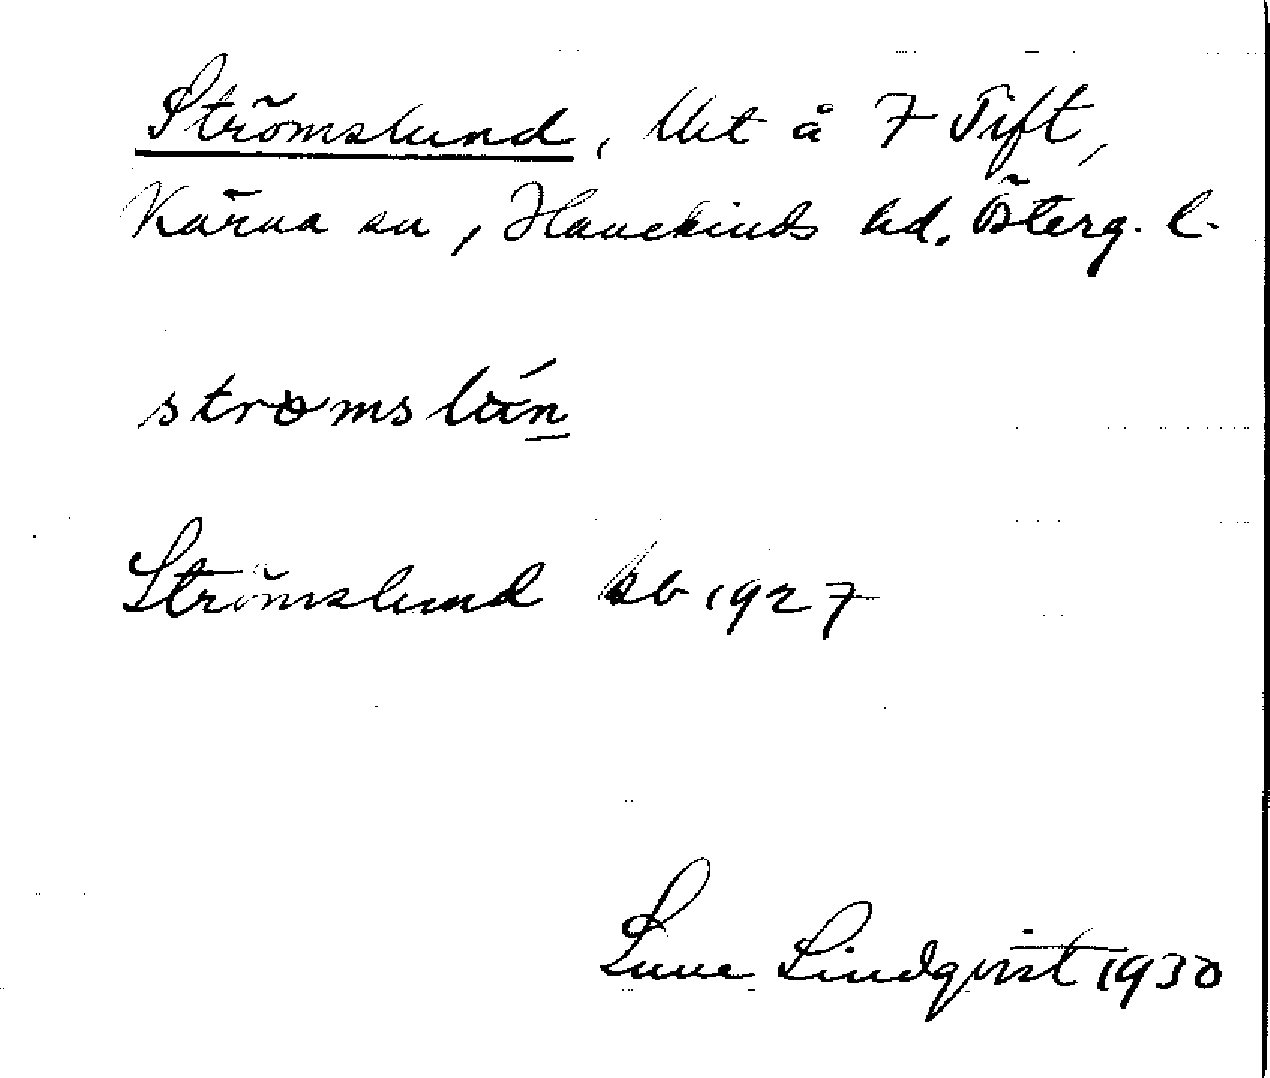 Strömslund, lht å 7 Tift,
Kärna sn, Hanekinds hd. Österg. l.
strømslún
Strömslund kb 1927
Sune Lindqvist 1930